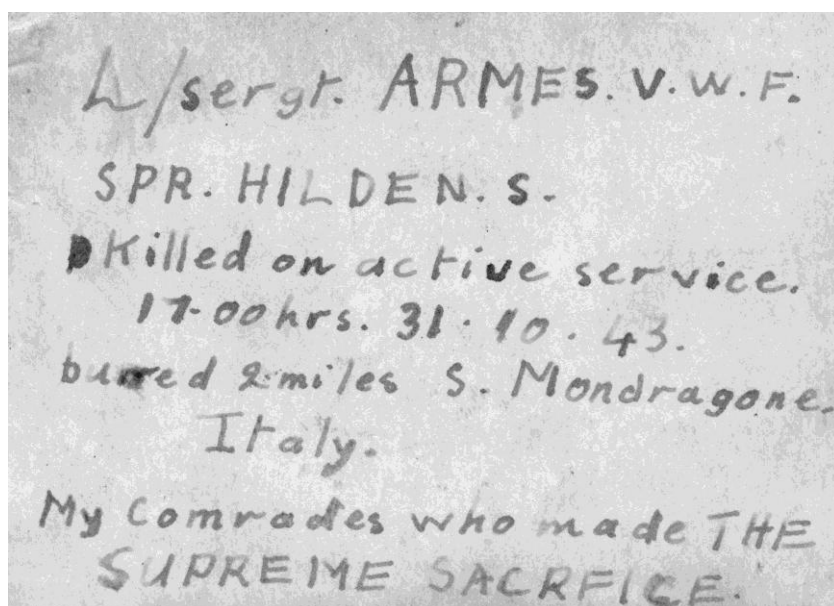 L/sergt. ARMES. V. W. F.
SPR. HILDEN. S.
Killed on active service.
17-00hrs. 31. 10. 43.
buried 2 miles S. Mondragone.
Italy.
My Comrades who made THE
SUPREME SACRFICE.